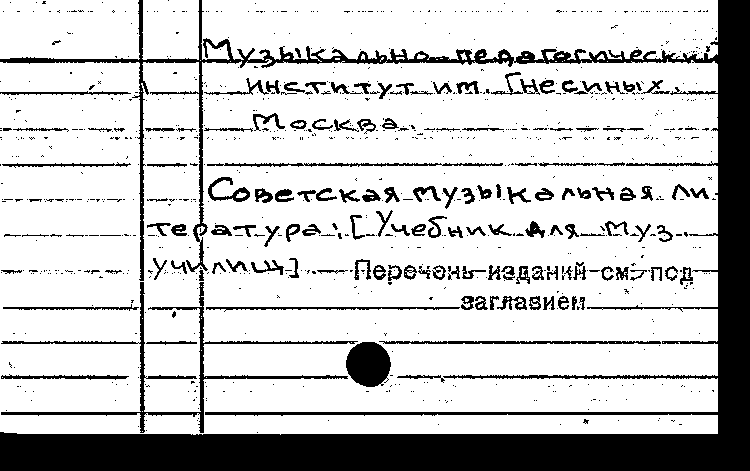 Музыкально-педагогический
институт им. Гнесиных.
Москва.
Советская музыкальная ли-
тература: [Учебник для муз.
училищ]. Перечень изданий см. под
заглавием